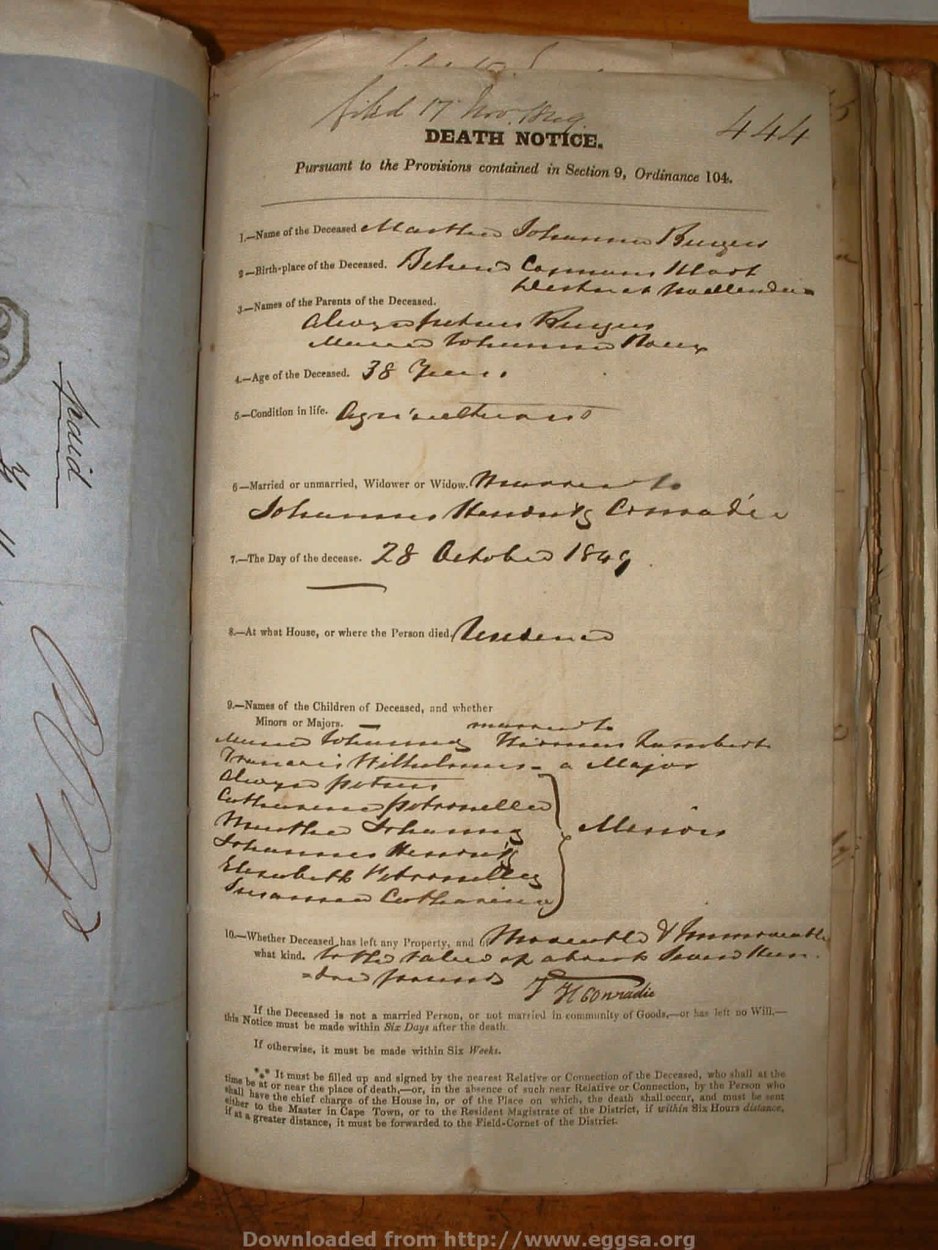 filed 17 Nov. 1849
444
DEATH NOTICE.
Pursuant to the Provisions contained in Section 9, Ordinance 104.
1.—Name of the Deceased Martha Johanna Burgers
2—Birth-place of the Deceased.
District Swellendam
3—Names of the Parents of the Deceased.
Petrus Burgers
Maria Johanna
4.—Age of the Deceased. 38 Years
5—Condition in life. Agriculturist
6—Married or unmarried, Widower or Widow. Married to
Johannes Hendrik Conradie
7.—The Day of the decease. 28 October 1849
8.—At what House, or where the Person died. Residence
9.—Names of the Children of Deceased, and whether
Minors or Majors. — married to
Maria Johanna Lambert
Francois Wilhelmus - a Major
Petrus
Catharina Petronella
Martha Johanna Minors
Johannes Hendrik
Elizabeth Petronella
Susanna Catharina
10.—Whether Deceased has left any Property, and of Moveable & Immoveable
what kind. to the value of about Seven Hun-
=dred pounds J H Conradie
If the Deceased is not a married Person, or not married in community of Goods,—or has left no Will.—
this Notice must be made within Six Days after the death.
If otherwise, it must be made within Six Weeks.
*** It must be filled up and signed by the nearest Relative or Connection of the Deceased, who shall at the
time be at or near the place of death,—or, in the absence of such near Relative or Connection, by the Person who
shall have the chief charge of the House in, or of the Place on which, the death shall occur, and must be sent
either to the Master in Cape Town, or to the Resident Magistrate of the District, if within Six Hours distance,
if at a greater distance, it must be forwarded to the Field-Cornet of the District.
paid
Downloaded from http://www.eggsa.org